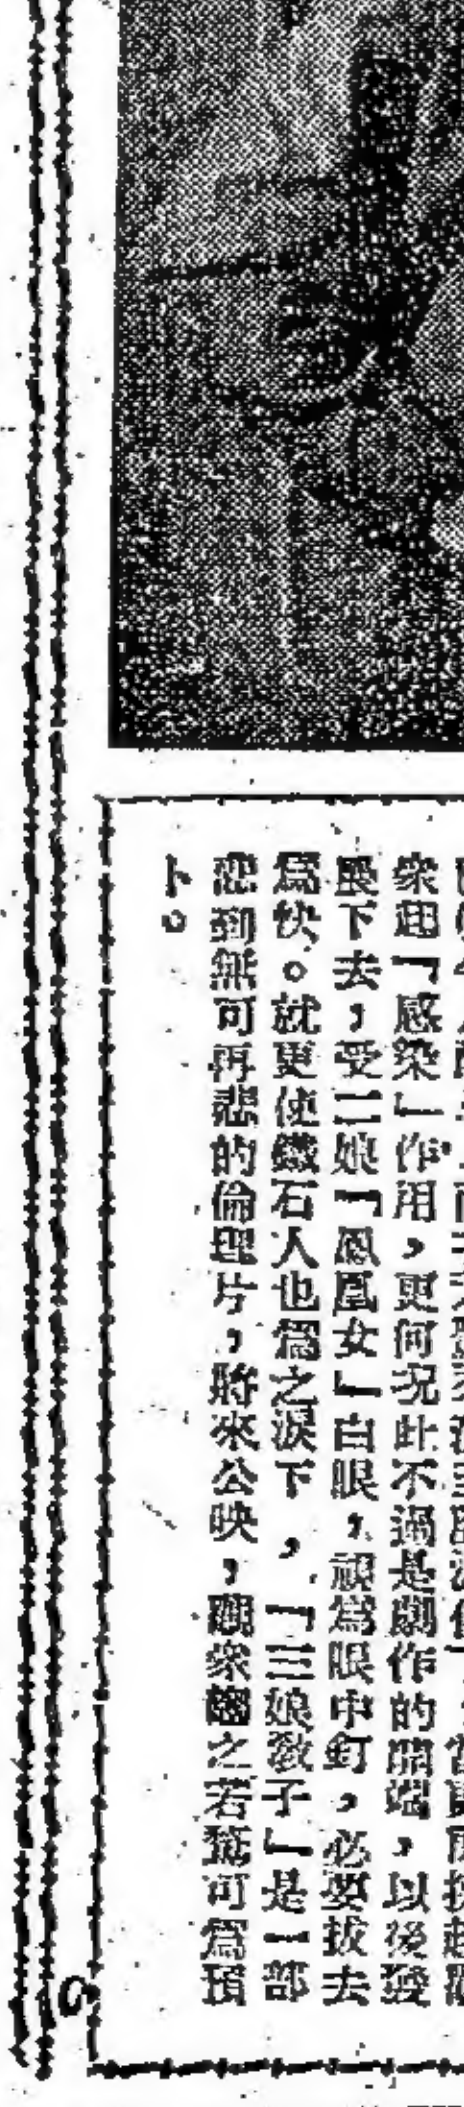 衆起「感染」作用，更何况此不過是劇作的開端，以後發
展下去，受二娘「鳳凰女」白眼，視爲眼中釘，必要拔去
爲快。就更使鐵石人也爲之淚下，「三娘敎子」是一部
悲到無可再悲的倫理片，將來公映，觀衆趨之若鶩可爲預
卜。